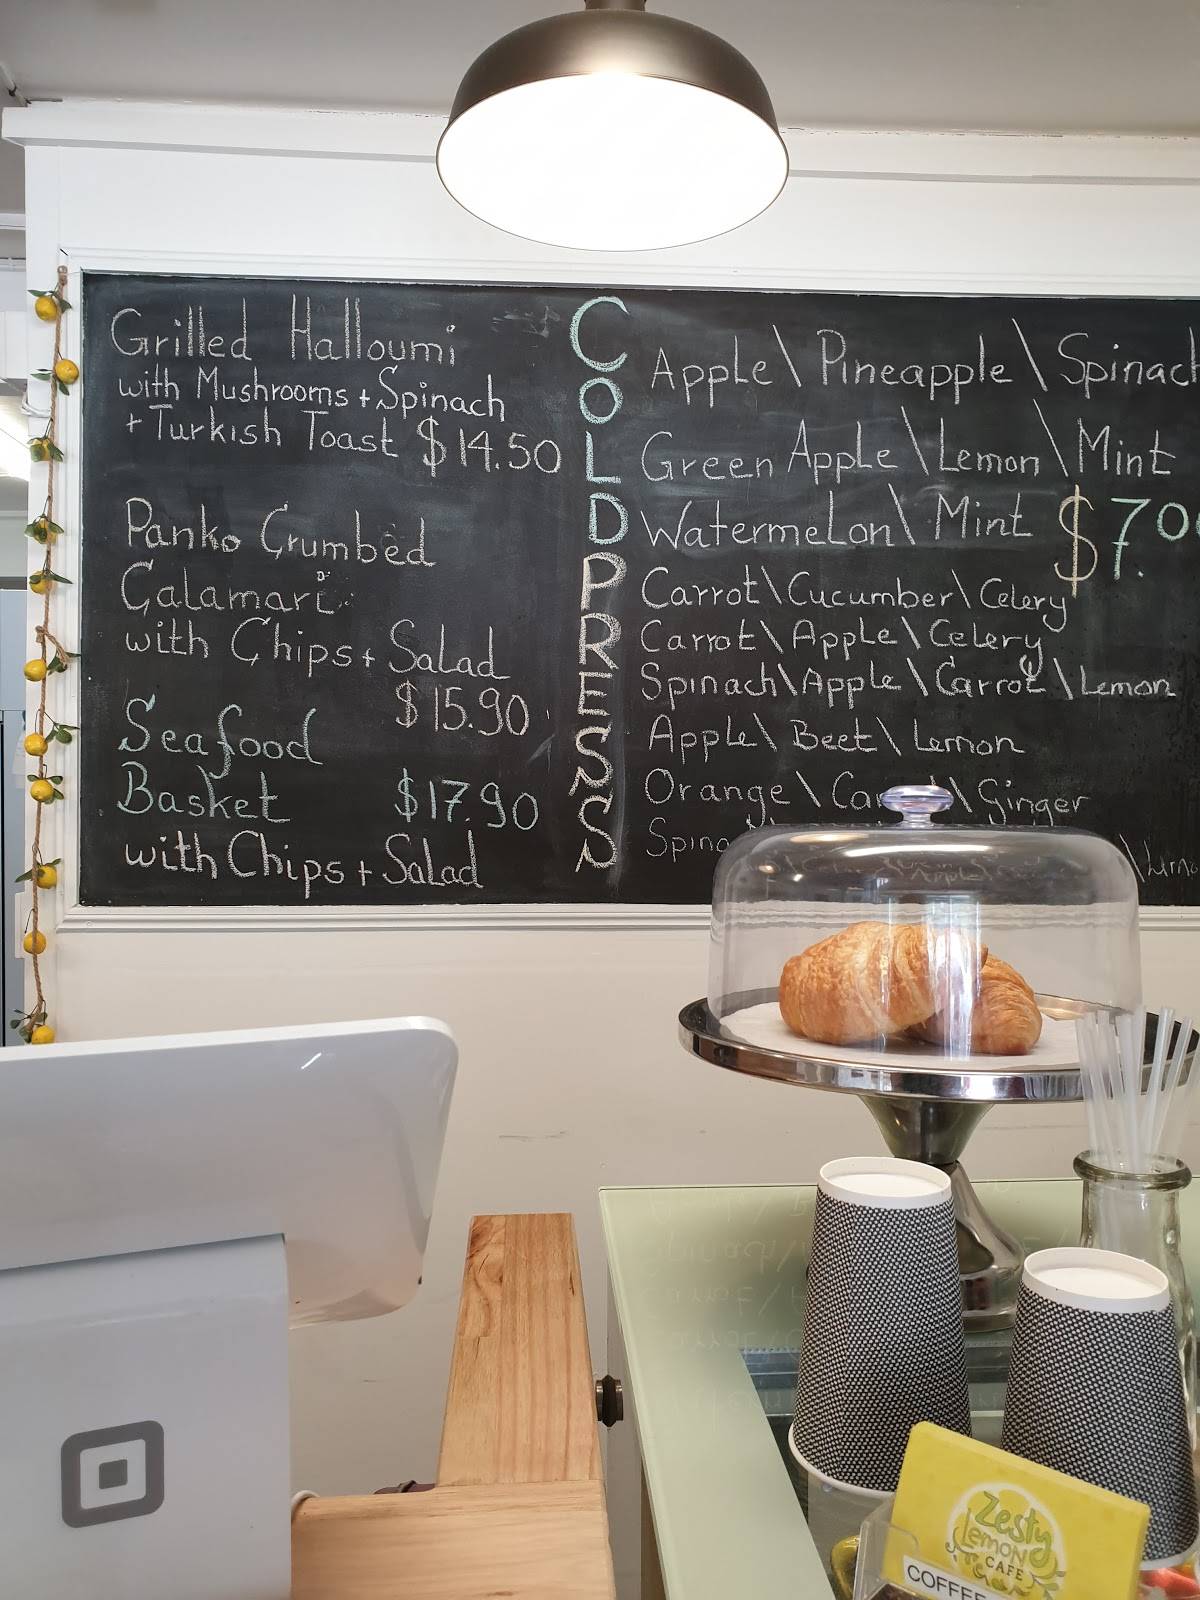 Grilled Halloumi
with Mushrooms + Spinach
+ Turkish Toast $14.50
Panko Crumbed
Calamari
with Chips + Salad
$15.90
Seafood
Basket $17.90
with Chips + Salad
COLDPRESS
Apple\Pineapple\Spinach
Green Apple\Lemon\Mint
Watermelon\Mint $7.00
Carrot\Cucumber\Celery
Carrot\Apple\Celery
Spinach\Apple\Carrot\Lemon
Apple\Beet\Lemon
Orange\ \Ginger
Zesty
Lemon
CAFE
COFFEE